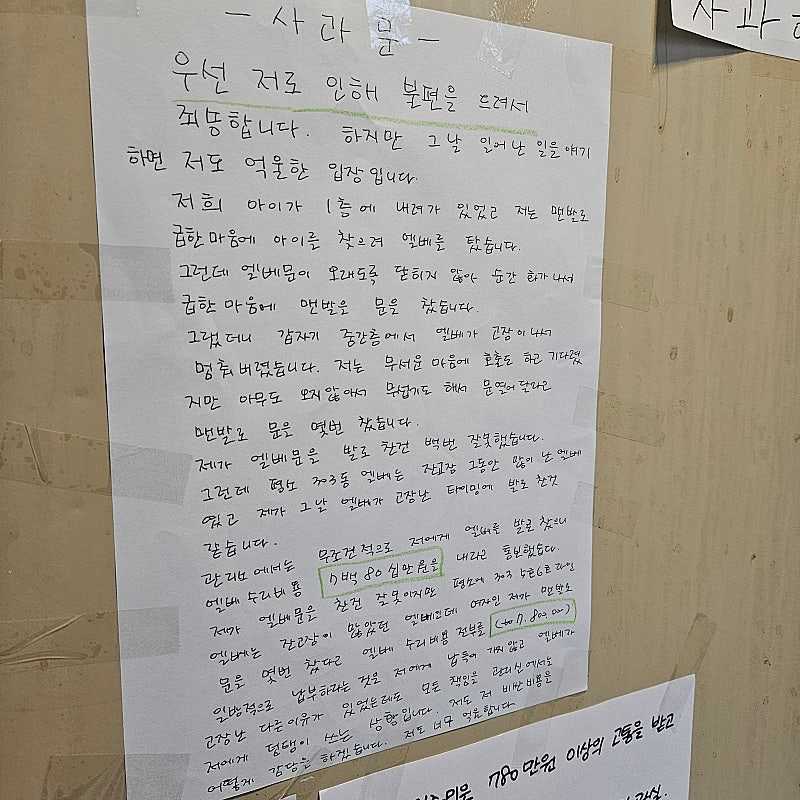 - 사 과 문 -
우선 저로 인해 불편을 드려서
죄송합니다. 하지만 그날 일어난 일을 얘기
하면 저도 억울한 입장입니다.
저희 아이가 1층에 내려가 있었고 저는 맨발로
급한 마음에 아이를 찾으려 엘베를 탔습니다.
그런데 엘베문이 오래도록 닫히지 않아 순간 화가나서
급한 마음에 맨발로 문을 찼습니다.
그랬더니 갑자기 중간층에서 엘베가 고장이 나서
멈춰버렸습니다. 저는 무서운 마음에 호출도 하고 기다렸
지만 아무도 오지않아서 무섭기도 해서 문열어달라고
맨발로 문을 몇번 찼습니다.
제가 엘베문을 발로 찬건 백번 잘못했습니다.
그런데 평소 303동 엘베는 잔고장 그동안 많이 난 엘베
였고 제가 그날 엘베가 고장난 타이밍에 발로 찬것
같습니다.
관리소에서는 무조건적으로 저에게 엘베를 발로 찼으니
엘베 수리비용 7백 80 십만원을 내라고 통보했습니다.
제가 엘베문을 찬건 잘못이지만 평소에 303 5호6호라인
엘베는 잔고장이 많았던 엘베인데 여자인 제가 맨발로
문을 몇번 찼다고 엘베 수리비용 전부를
일방적으로 납부하라는 것은 저에게 납득이 가지 않고 엘베가
고장난 다른이유가 있었는데도 모든 책임을 관리실에서는
저에게 덤탱이 쓰는 상황입니다. 저도 저 비싼비용을
어떻게 감당을 하겠습니다. 저도 너무 억울합니다
사과
780만원 이상의 고통을 받고